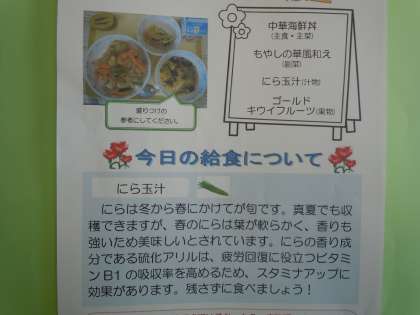 中華海鮮丼
(主食・主菜)
もやしの華風和え
(副菜)
にら玉汁(汁物)
ゴールド
キウイフルーツ(果物)
盛りつけの
参考にしてください。
今日の給食について
にら玉汁
にらは冬から春にかけてが旬です。真夏でも収
穫できますが、春のにらは葉が軟らかく、香りも
強いため美味しいとされています。にらの香り成
分である硫化アリルは、疲労回復に役立つビタミ
ンB1の吸収率を高めるため、スタミナアップに
効果があります。残さずに食べましょう!